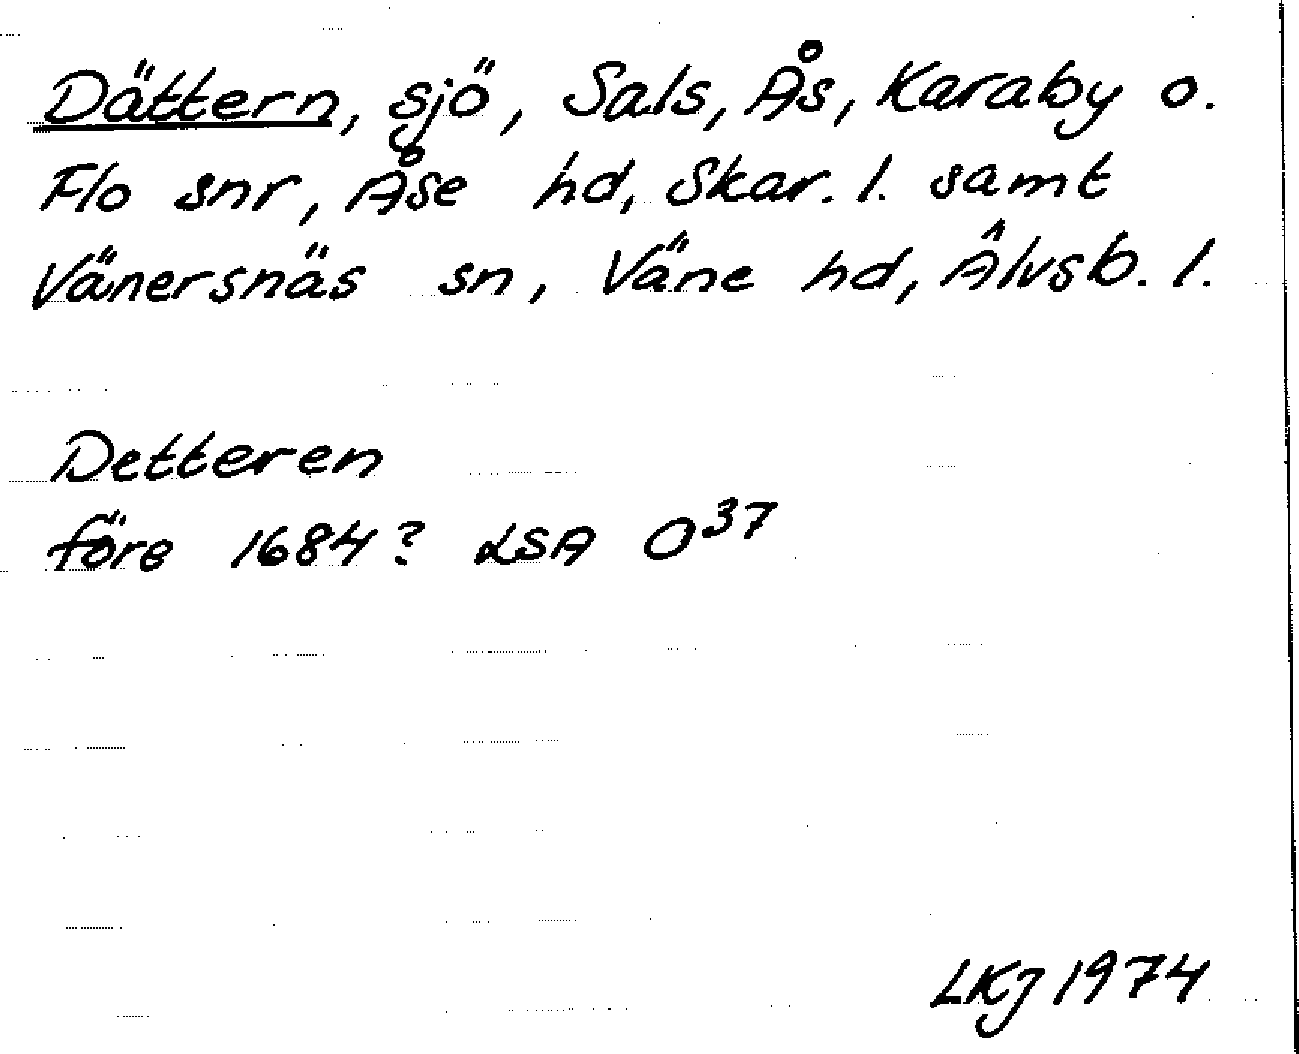 Dättern, sjö, Sals, Ås, Karaby o.
Flo snr, Åse hd, Skar. l. samt
Vänersnäs sn, Väne hd, Älvsb. l.
Detteren
före 1684? LSA O³⁷
LKJ 1974